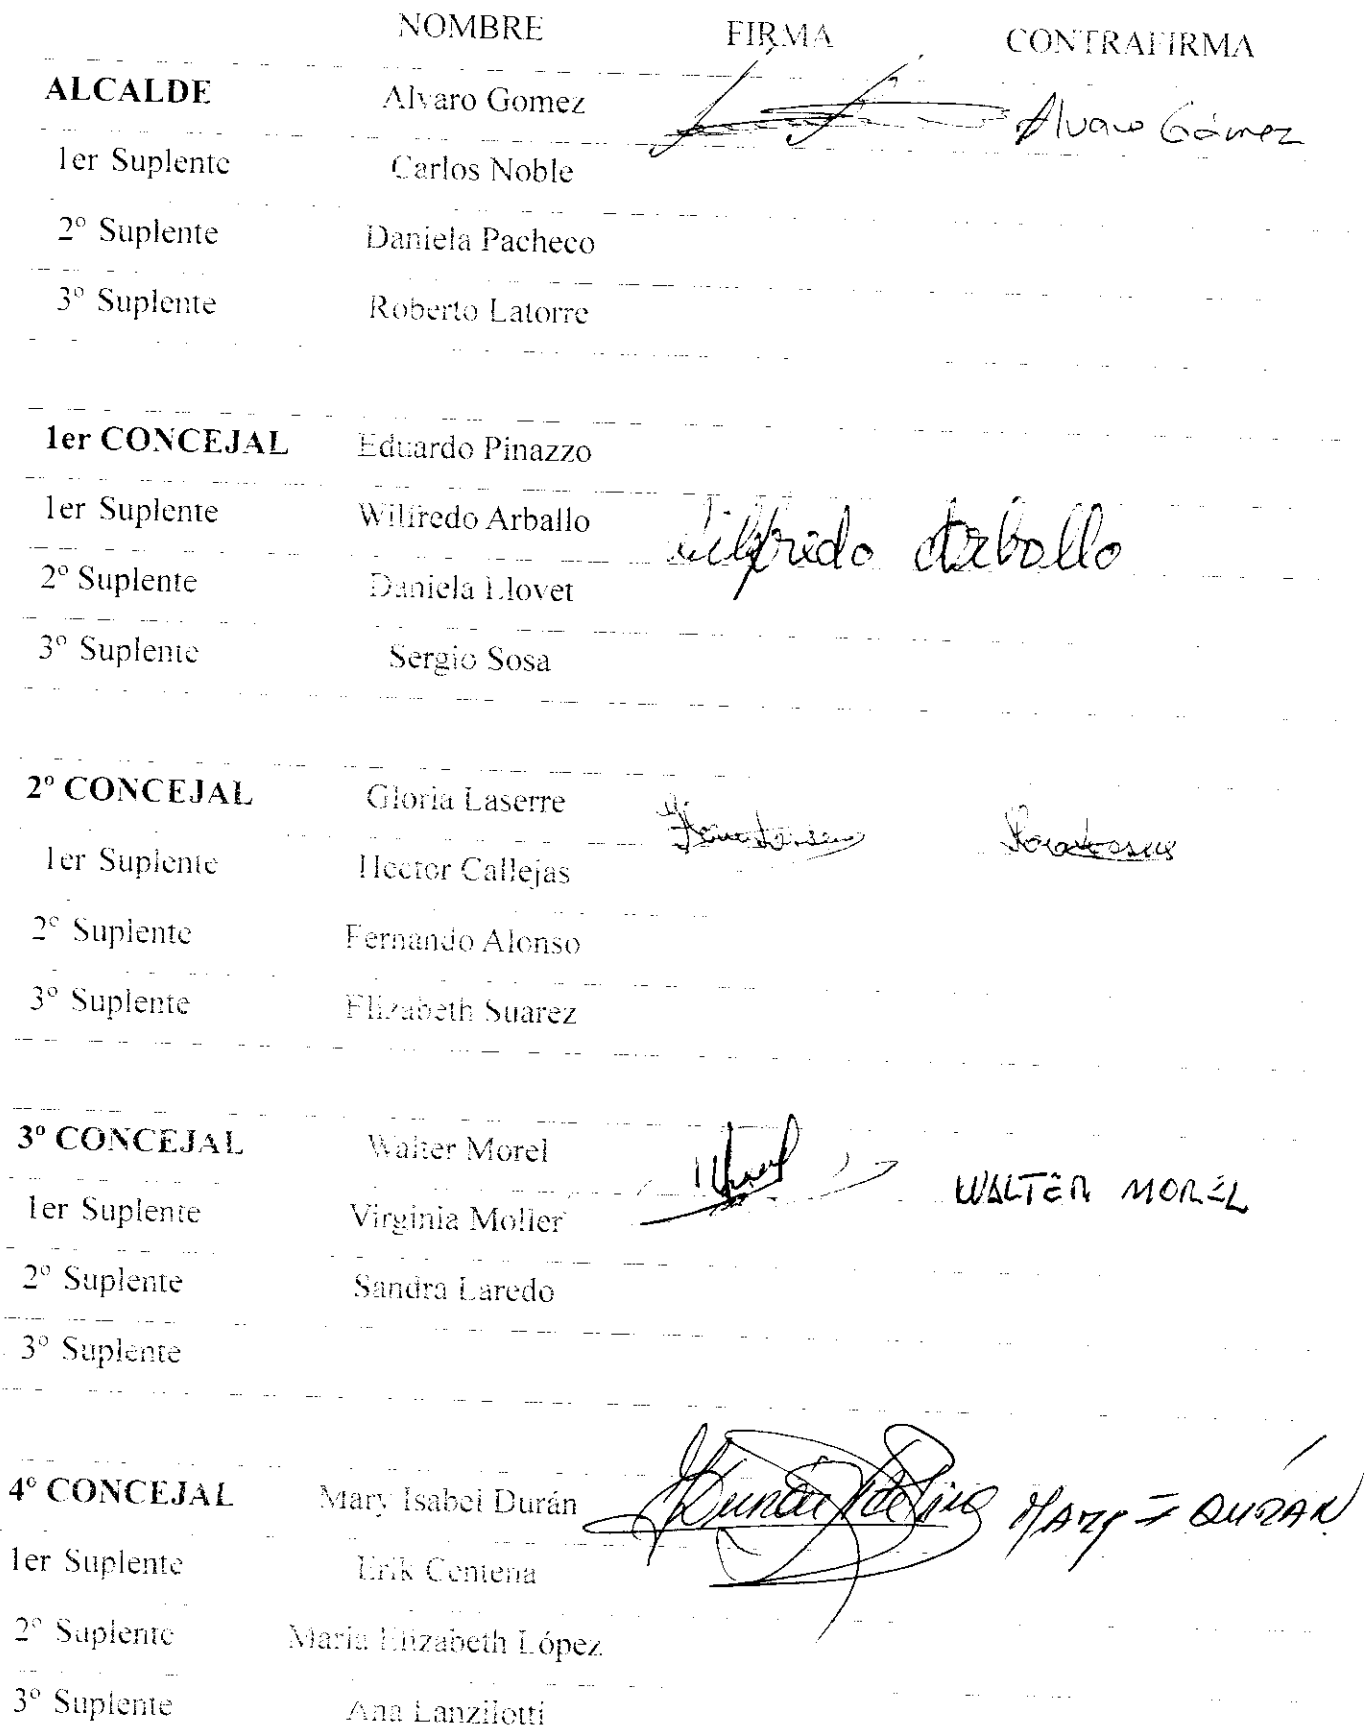 NOMBRE FIRMA CONTRAFIRMA
ALCALDE Alvaro Gomez Alvaro Gómez
1er Suplente Carlos Noble
2º Suplente Daniela Pacheco
3º Suplente Roberto Latorre
1er CONCEJAL Eduardo Pinazzo
1er Suplente Wilfredo Arballo Wilfredo Arballo
2º Suplente Daniela Llovet
3º Suplente Sergio Sosa
2º CONCEJAL Gloria Laserre
1er Suplente Hector Callejas
2º Suplente Fernando Alonso
3º Suplente Elizabeth Suarez
3º CONCEJAL Walter Morel WALTER MOREL
1er Suplente Virginia Moller
2º Suplente Sandra Laredo
3º Suplente
4º CONCEJAL Mary Isabel Durán MARY I DURÁN
1er Suplente Erik Centena
2º Suplente Maria Elizabeth López
3º Suplente Ana Lanzilotti